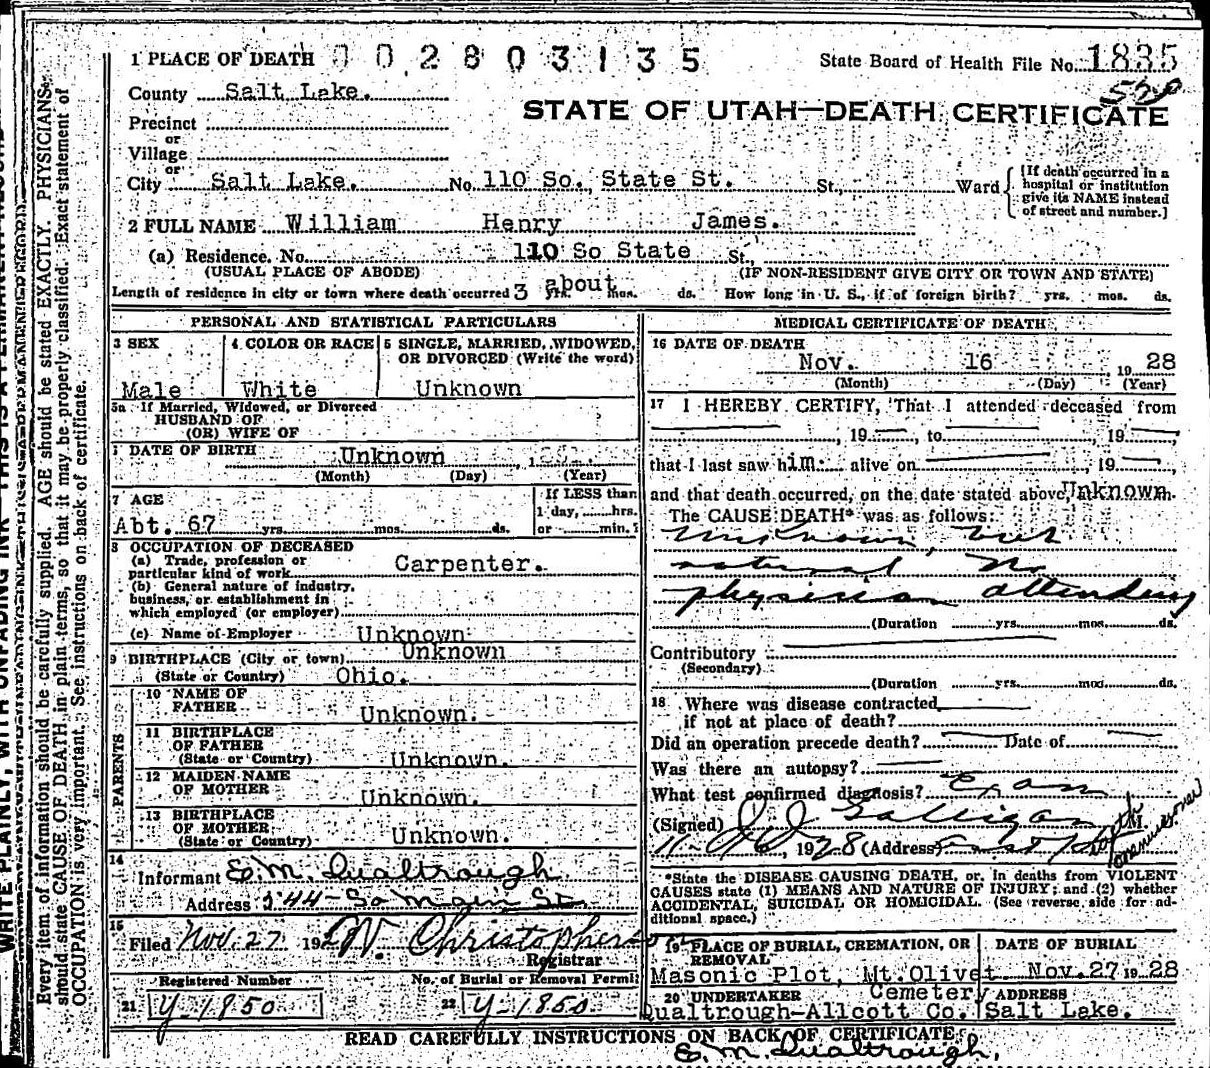 1 PLACE OF DEATH 002803135 State Board of Health File No. 1835
County Salt Lake.
STATE OF UTAH—DEATH CERTIFICATE
Precinct
or
Village
or
City Salt Lake. No. 110 So. State St. St., Ward
[If death occurred in a hospital or institution give its NAME instead of street and number.]
2 FULL NAME William Henry James.
(a) Residence. No. 110 So State St.,
(USUAL PLACE OF ABODE) (IF NON-RESIDENT GIVE CITY OR TOWN AND STATE)
Length of residence in city or town where death occurred 3 yrs. about mos. ds. How long in U. S., if of foreign birth? yrs. mos. ds.
PERSONAL AND STATISTICAL PARTICULARS
3 SEX
Male
4 COLOR OR RACE
White
5 SINGLE, MARRIED, WIDOWED, OR DIVORCED (Write the word)
Unknown
5a If Married, Widowed, or Divorced
HUSBAND OF
(OR) WIFE OF
DATE OF BIRTH Unknown , 1
(Month) (Day) (Year)
7 AGE
Abt. 67 yrs. mos. ds.
If LESS than
1 day, hrs.
or min.?
8 OCCUPATION OF DECEASED
(a) Trade, profession or
particular kind of work Carpenter.
(b) General nature of industry,
business, or establishment in
which employed (or employer)
(c) Name of Employer Unknown
9 BIRTHPLACE (City or town) Unknown
(State or Country) Ohio.
PARENTS
10 NAME OF
FATHER Unknown.
11 BIRTHPLACE
OF FATHER
(State or Country) Unknown.
12 MAIDEN NAME
OF MOTHER Unknown.
13 BIRTHPLACE
OF MOTHER
(State or Country) Unknown.
14
Informant E.M. Qualtrough.
Address 244-So Main St.
15
Filed Nov. 27 192 W. Christophers
Registrar
Registered Number No. of Burial or Removal Permit
21 Y-1850 22 Y-1850
MEDICAL CERTIFICATE OF DEATH
16 DATE OF DEATH
Nov. 16 19 28
(Month) (Day) (Year)
17 I HEREBY CERTIFY, That I attended deceased from
, 19 , to , 19
that I last saw him alive on , 19
and that death occurred, on the date stated above, Unknown m.
The CAUSE DEATH* was as follows:
Unknown, but
natural No
physician attending
(Duration yrs. mos. ds.
Contributory
(Secondary)
(Duration yrs. mos. ds.
18 Where was disease contracted
if not at place of death?
Did an operation precede death? Date of
Was there an autopsy?
What test confirmed diagnosis? Exam
(Signed) Galligan
, 1928 (Address)
*State the DISEASE CAUSING DEATH, or, in deaths from VIOLENT
CAUSES state (1) MEANS AND NATURE OF INJURY; and (2) whether
ACCIDENTAL, SUICIDAL OR HOMICIDAL. (See reverse side for ad-
ditional space.)
19 PLACE OF BURIAL, CREMATION, OR
REMOVAL
Masonic Plot, Mt.Olivet
Cemetery
DATE OF BURIAL
Nov.27 19 28
20 UNDERTAKER
Qualtrough-Allcott Co.
ADDRESS
Salt Lake.
READ CAREFULLY INSTRUCTIONS ON BACK OF CERTIFICATE.
E.M. Qualtrough,
Every item of information should be carefully supplied. AGE should be stated EXACTLY. PHYSICIANS
should state CAUSE OF DEATH in plain terms, so that it may be properly classified. Exact statement of
OCCUPATION is very important. See instructions on back of certificate.